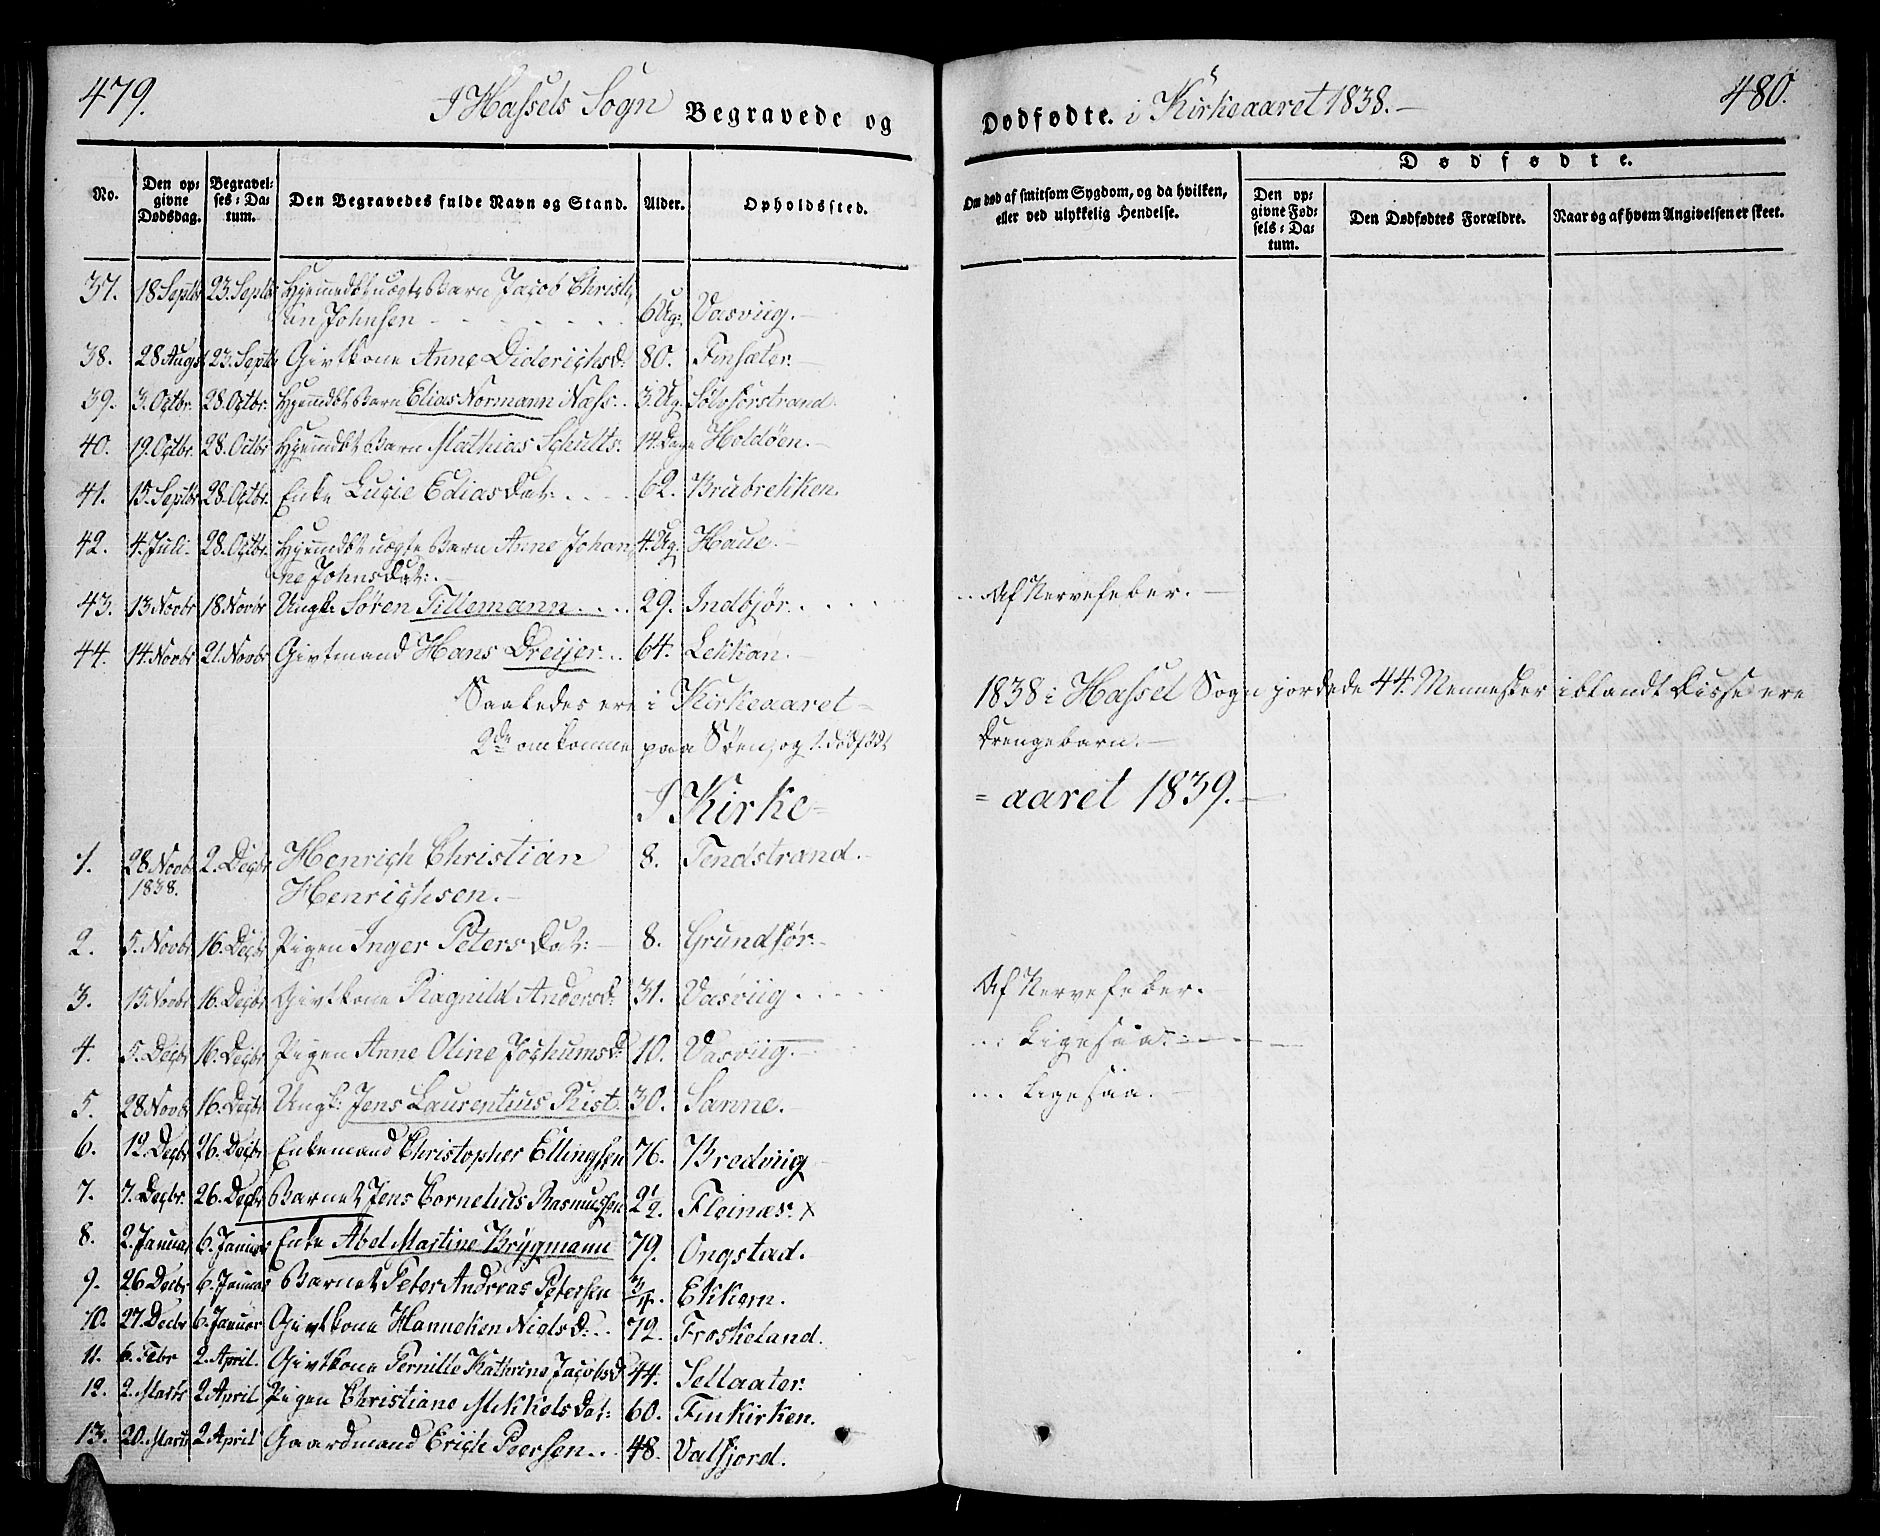 479.
I Hassels Sogn Begravede og
Dødfødte. i Kirkeaaret 1838.
480.
No.
Den op-
givne
Dødsdag.
Begravel-
ses-Da-
tum.
Den Begravedes fulde Navn og Stand.
Alder.
Opholdssted.
Om død af smitsom Sygdom, og da hvilken,
eller ved ulykkelig Hendelse.
Dødfødte.
Den op-
givne Fød-
sels-Da-
tum.
Den Dødfødtes Forældre.
Naar og af hvem Angivelsen er skeet.
37. 18 Septbr 23. Septbr Hjemmedøbt uægte Barn Jacob Christi
an Johnsen 6 Ug: Vasviig.
38. 28 Augst 23. Septbr Givtkone Anne Diderichsd: 80. Finsæter.
39. 3. Octbr. 28. Octbr. Hjemmdøbt Barn Elias Normann Næss. 3. Ug. Solsforstrand.
40. 19. Octbr. 28. Octbr Hjemmdøbt Barn Mathias Schults. 14. Dage Holdøen.
41. 15. Septbr 28. Octbr. Enke Lucie Edias Dat: 62. Brubrekken.
42. 4. Juli. 28. Octbr. Hjemmdøbt uægte Barn Anne Johan
ne Johns Dat: 4. Ug. Haue.
43. 13 Novbr 18 Novbr Ungk: Søren Tillemann 29. Indbjør. Af Nervefeber.
44. 14. Novbr 21. Novbr Givtmand Hans Dreijer. 64. Lekkan.
Saaledes ere i Kirkeaaret 1838 i Hassel Sogn jordede 44. Mennesker iblandt disse ere
2de omkomne paa Søen, og 1. dødfødt Drengebarn.
I Kirke= =aaret 1839.
1. 28 Novbr 1838. 2. Decbr Henrich Christian
Henrichsen. 8. Tendstrand.
2. 5. Novbr 16. Decbr Pigen Inger Peters Dat: 8. Grundfør.
3. 15 Novbr 16. Decbr Givtkone Ragnild Andersd: 31. Vasviig. Af Nervefeber.
4. 5. Decbr 16. Decbr Pigen Anne Oline Jochumsd: 10. Vasviig. Ligesaa.
5. 28 Novbr 16. Decbr Ungk: Jens Laurentius Rist. 30. Sanne. Ligesaa.
6. 12. Decbr 26. Decbr. Enkemand Christopher Ellingsen 76. Bredviig
7. 7. Decbr. 26. Decbr Barnet Jens Cornelius Rasmussen 2½ Fleinæs. x
8. 2. Januar 6. Januar Enke Abel Martine Brygmann 79. Ongstad.
9. 26 Decbr 6. Januar Barnet Peter Andreas Petersen 3/4. Ekkern.
10. 27. Decbr 6. Januar Givtkone Hanneken Niels D: 72. Froskeland.
11. 6. Febr 2. April. Givtkone Pernille Kathrine Jacobsd 44. Sellaater:
12. 2. Marts 2 April Pigen Christiane Mikkels Dat: 60. Finkirken.
13. 20. Marts 2 April Gaardmand Erich Peersen. 48. Valfjord.